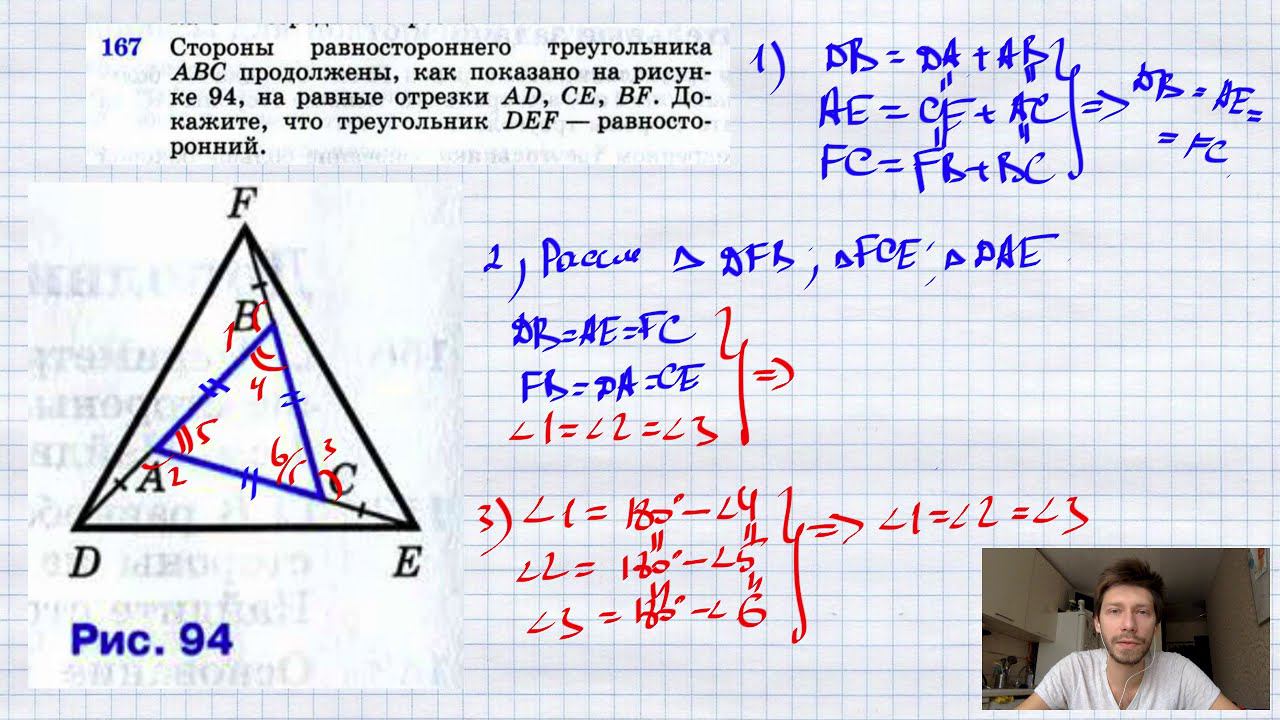 167 Стороны равностороннего треугольника
ABC продолжены, как показано на рисун-
ке 94, на равные отрезки AD, CE, BF. До-
кажите, что треугольник DEF — равносто-
ронний.
1) DB = DA + AB
AE = CE + AC
FC = FB + BC
=> DB = AE =
= FC
F
B
1
4
5
A
2
6
3
C
D
E
Рис. 94
2, Рассм △ DFB; △FCE; △DAE
DB = AE = FC
FB = DA = CE
∠1 = ∠2 = ∠3
=>
3) ∠1 = 180° - ∠4
∠2 = 180° - ∠5
∠3 = 180° - ∠6
=> ∠1 = ∠2 = ∠3